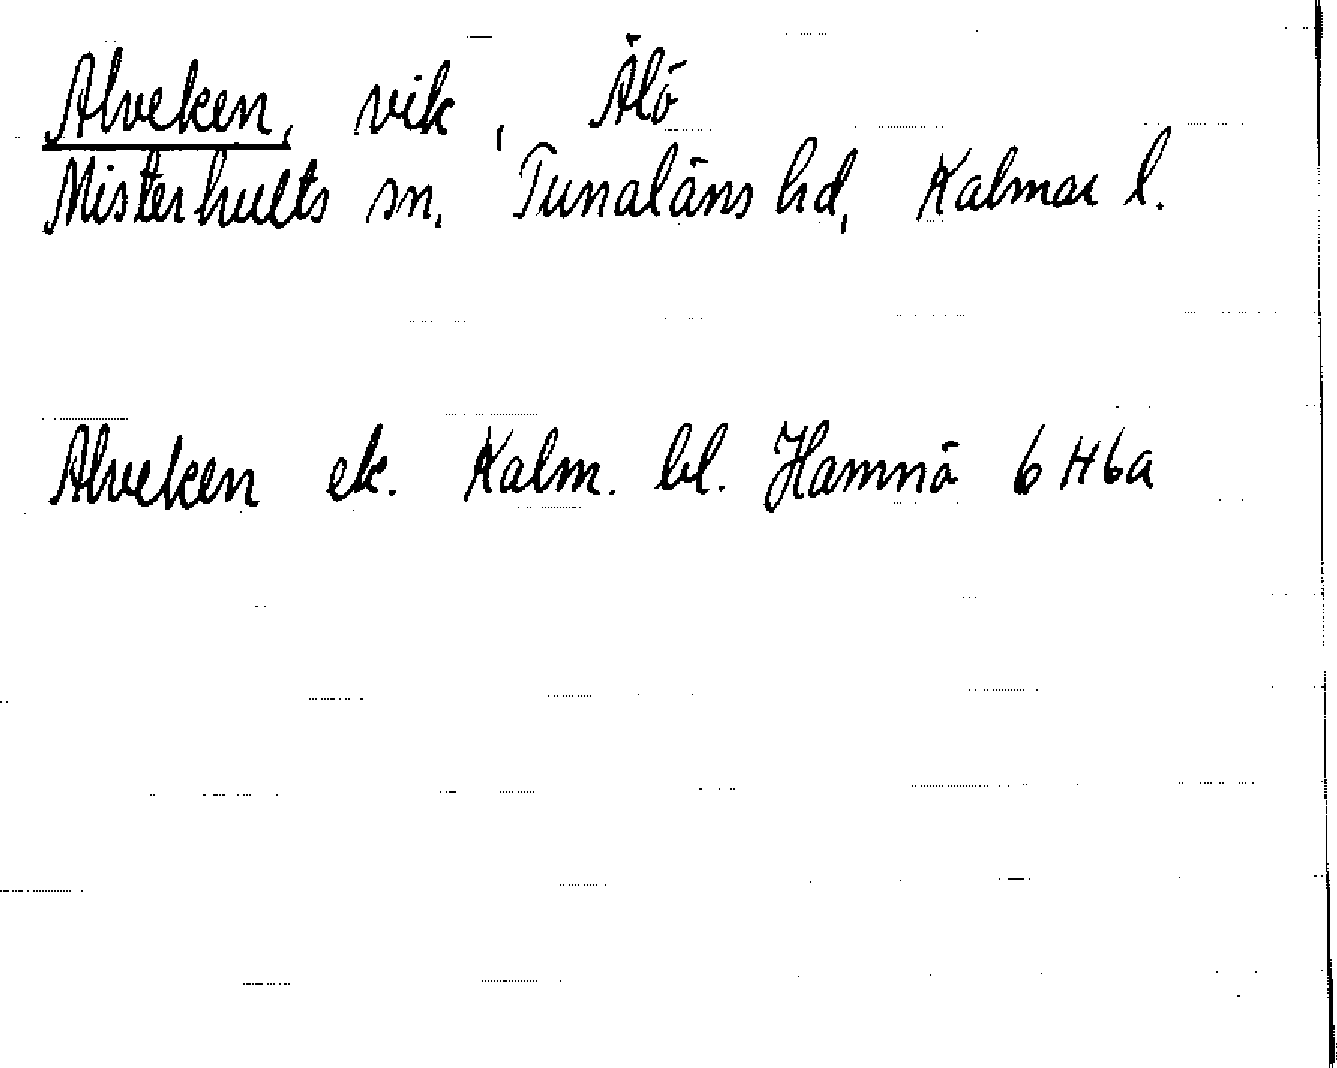 Alveken, vik, Älö
Misterhults sn, Tunaläns hd, Kalmar l.
Alveken ek. Kalm. bl. Hamnö 6H6a